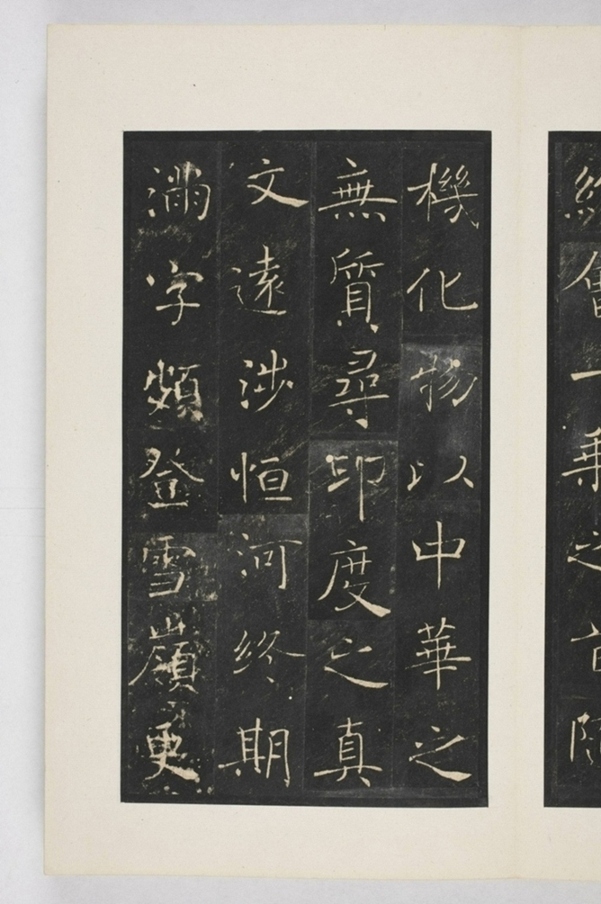 會一乘之旨隨
機化物以中華之
無質尋印度之真
文遠涉恒河終期
滿字頻登雪嶺更